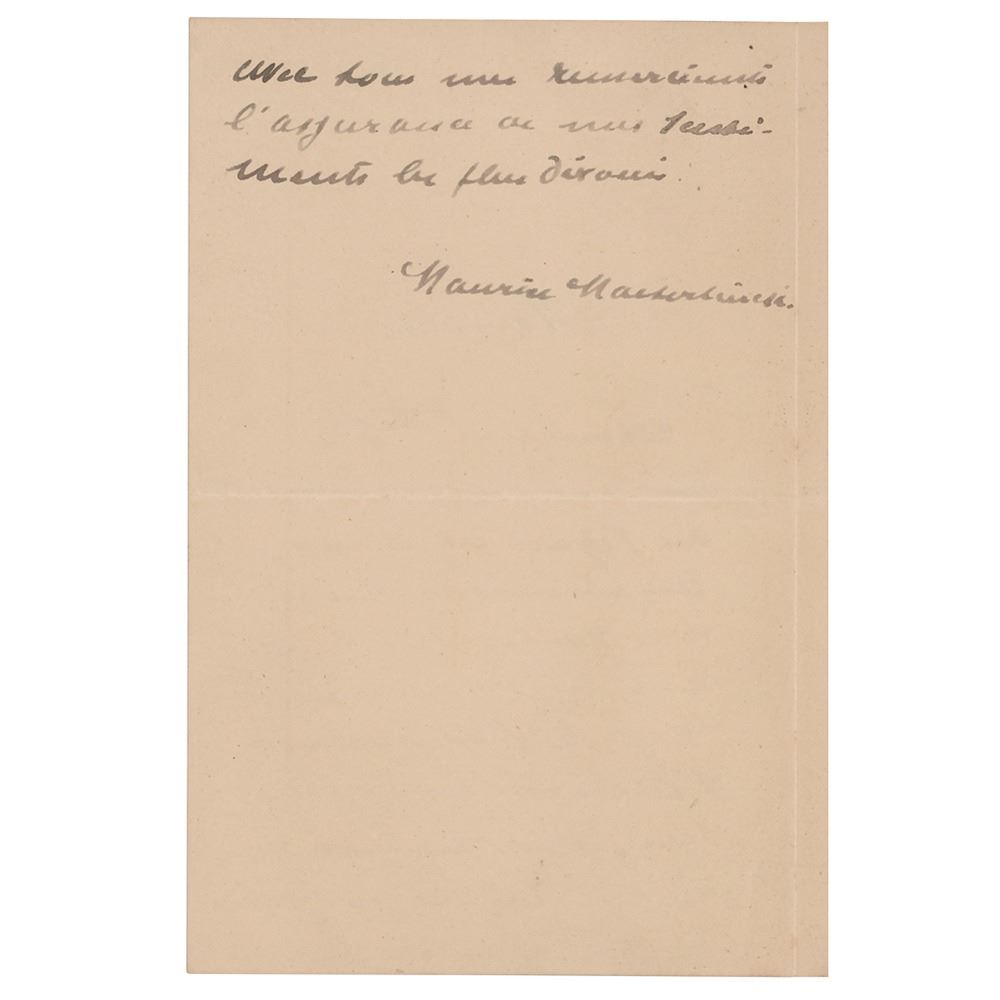 avec tous mes remerciements
l'assurance de mes senti-
ments les plus dévoués.
Maurice Maeterlinck.